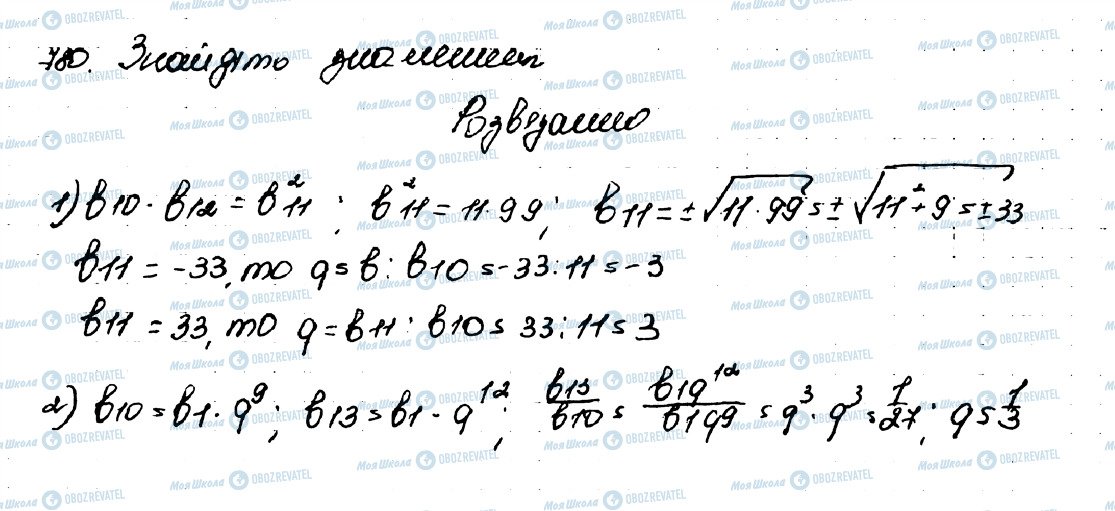 780. Знайдіть знаменник
Розв'язання
1) b10 · b12 = b²11 ; b²11 = 11·99 ; b11 = ±√11·99 = ±√11²·9 = ±33
b11 = -33, то q = b : b10 = -33:11 = -3
b11 = 33, то q = b11 : b10 = 33:11 = 3
2) b10 = b1 · q⁹ ; b13 = b1 · q¹² ; b13/b10 = b1q¹²/b1q9 = q³ ; q³ = 1/27 ; q = 1/3